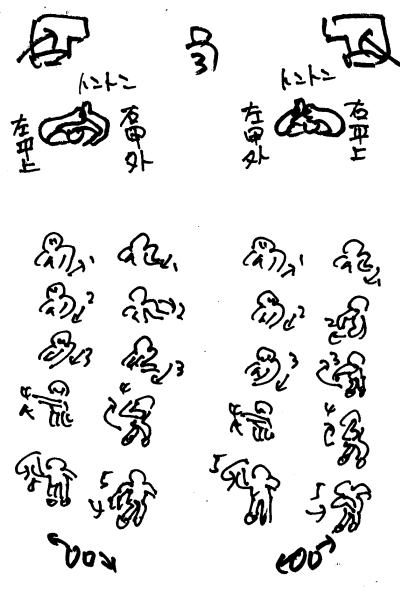 3
トントン
トントン
左平上
右甲外
左甲外
右平上
1 1 1 1
2 2 2 2
3 3 3 3
4 4 4 4
5 5 5 5